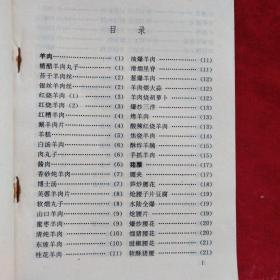 目录
羊肉 (1)
精醋羊肉丸子 (1)
芥子羊肉丝 (1)
银丝羊肉丝 (1)
红烧羊肉 (1) (2)
红烧羊肉 (2) (2)
红糟羊肉 (3)
涮羊肉片 (3)
羊糕 (3)
白汤羊肉 (4)
肉丸子 (4)
酱肉 (6)
香砂炖羊肉 (6)
博士汤 (7)
芙蓉羊肉片 (7)
软熘丸子 (8)
山口羊肉 (9)
蜜枣羊肉 (9)
清炖羊肉 (10)
东坡羊肉 (10)
桂花羊肉 (11)
油爆羊肉 (11)
滑熘里脊 (11)
葱爆羊肉 (12)
羊肉煨大蒜 (12)
羊肉烧胡萝卜 (13)
爆炒三泮 (13)
烤羊肉 (13)
酸辣红烧羊肉 (14)
焦烧羊肉 (15)
酥炸羊腩 (15)
手抓羊肉 (16)
腰夹 (17)
笋炒腰花 (17)
炝腰子片豆腐 (18)
水陆全爆 (18)
炝腰片 (19)
爆炒腰花 (19)
熘爆腰花 (20)
甜椒腰花 (20)
软酥猪腰 (21)
1